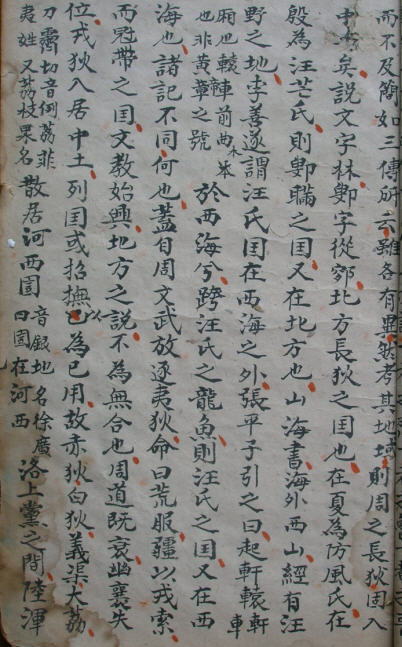 而不及簡如三傳所云雖各有異然考其地域則周之長狄固入
中矣說文字林鄋字從邑北方長狄之国也在夏為防風氏在
殷為汪芒氏則鄋瞞之国又在北方也山海書海外西山經有汪
野之地李善遂謂汪氏国在西海之外張平子引之曰起軒轅軒車
廂也轅輈前曲木苯
也非黃章之號
於西海兮跨汪氏之龍魚則汪氏之国又在西
海也諸記不同何也蓋自周文武放逐夷狄命曰荒服疆以戎索
而冠帶之国文教始興地方之說不為無合也周道既衰幽襄失
位戎狄入居中土列国或招撫以為己用故赤狄白狄義渠大荔
刀霽切音例荔非
夷姓又荔枝果名
散居河西圁
音銀地名徐廣
曰圁在河西
洛上黨之間陸渾